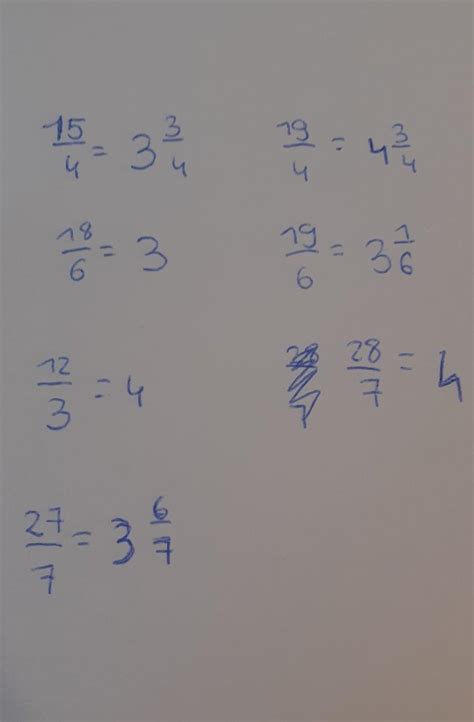 15/4 = 3 3/4    19/4 = 4 3/4
18/6 = 3    19/6 = 3 1/6
12/3 = 4    28/7 = 4
27/7 = 3 6/7